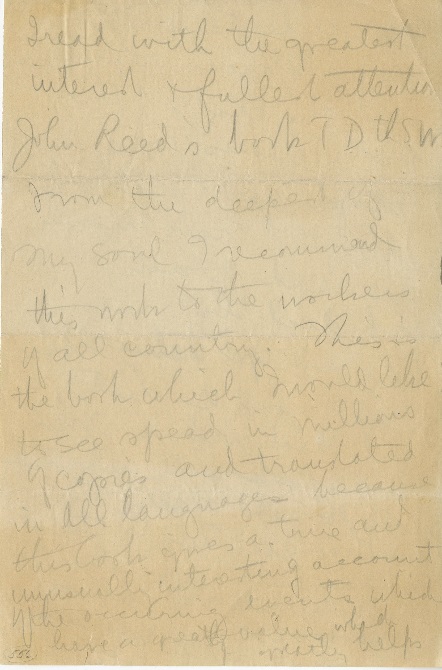 I read with the greatest
interest & fullest attention
John Reed s book T D th S W
From the deepest of
my soul I recommend
this work to the workers
of all country. This is
the book which I would like
to see spread in millions
of copies and translated
in all languages because
this book gives a true and
unusually interesting account
of the occurring events which
have a great value which
greatly helps